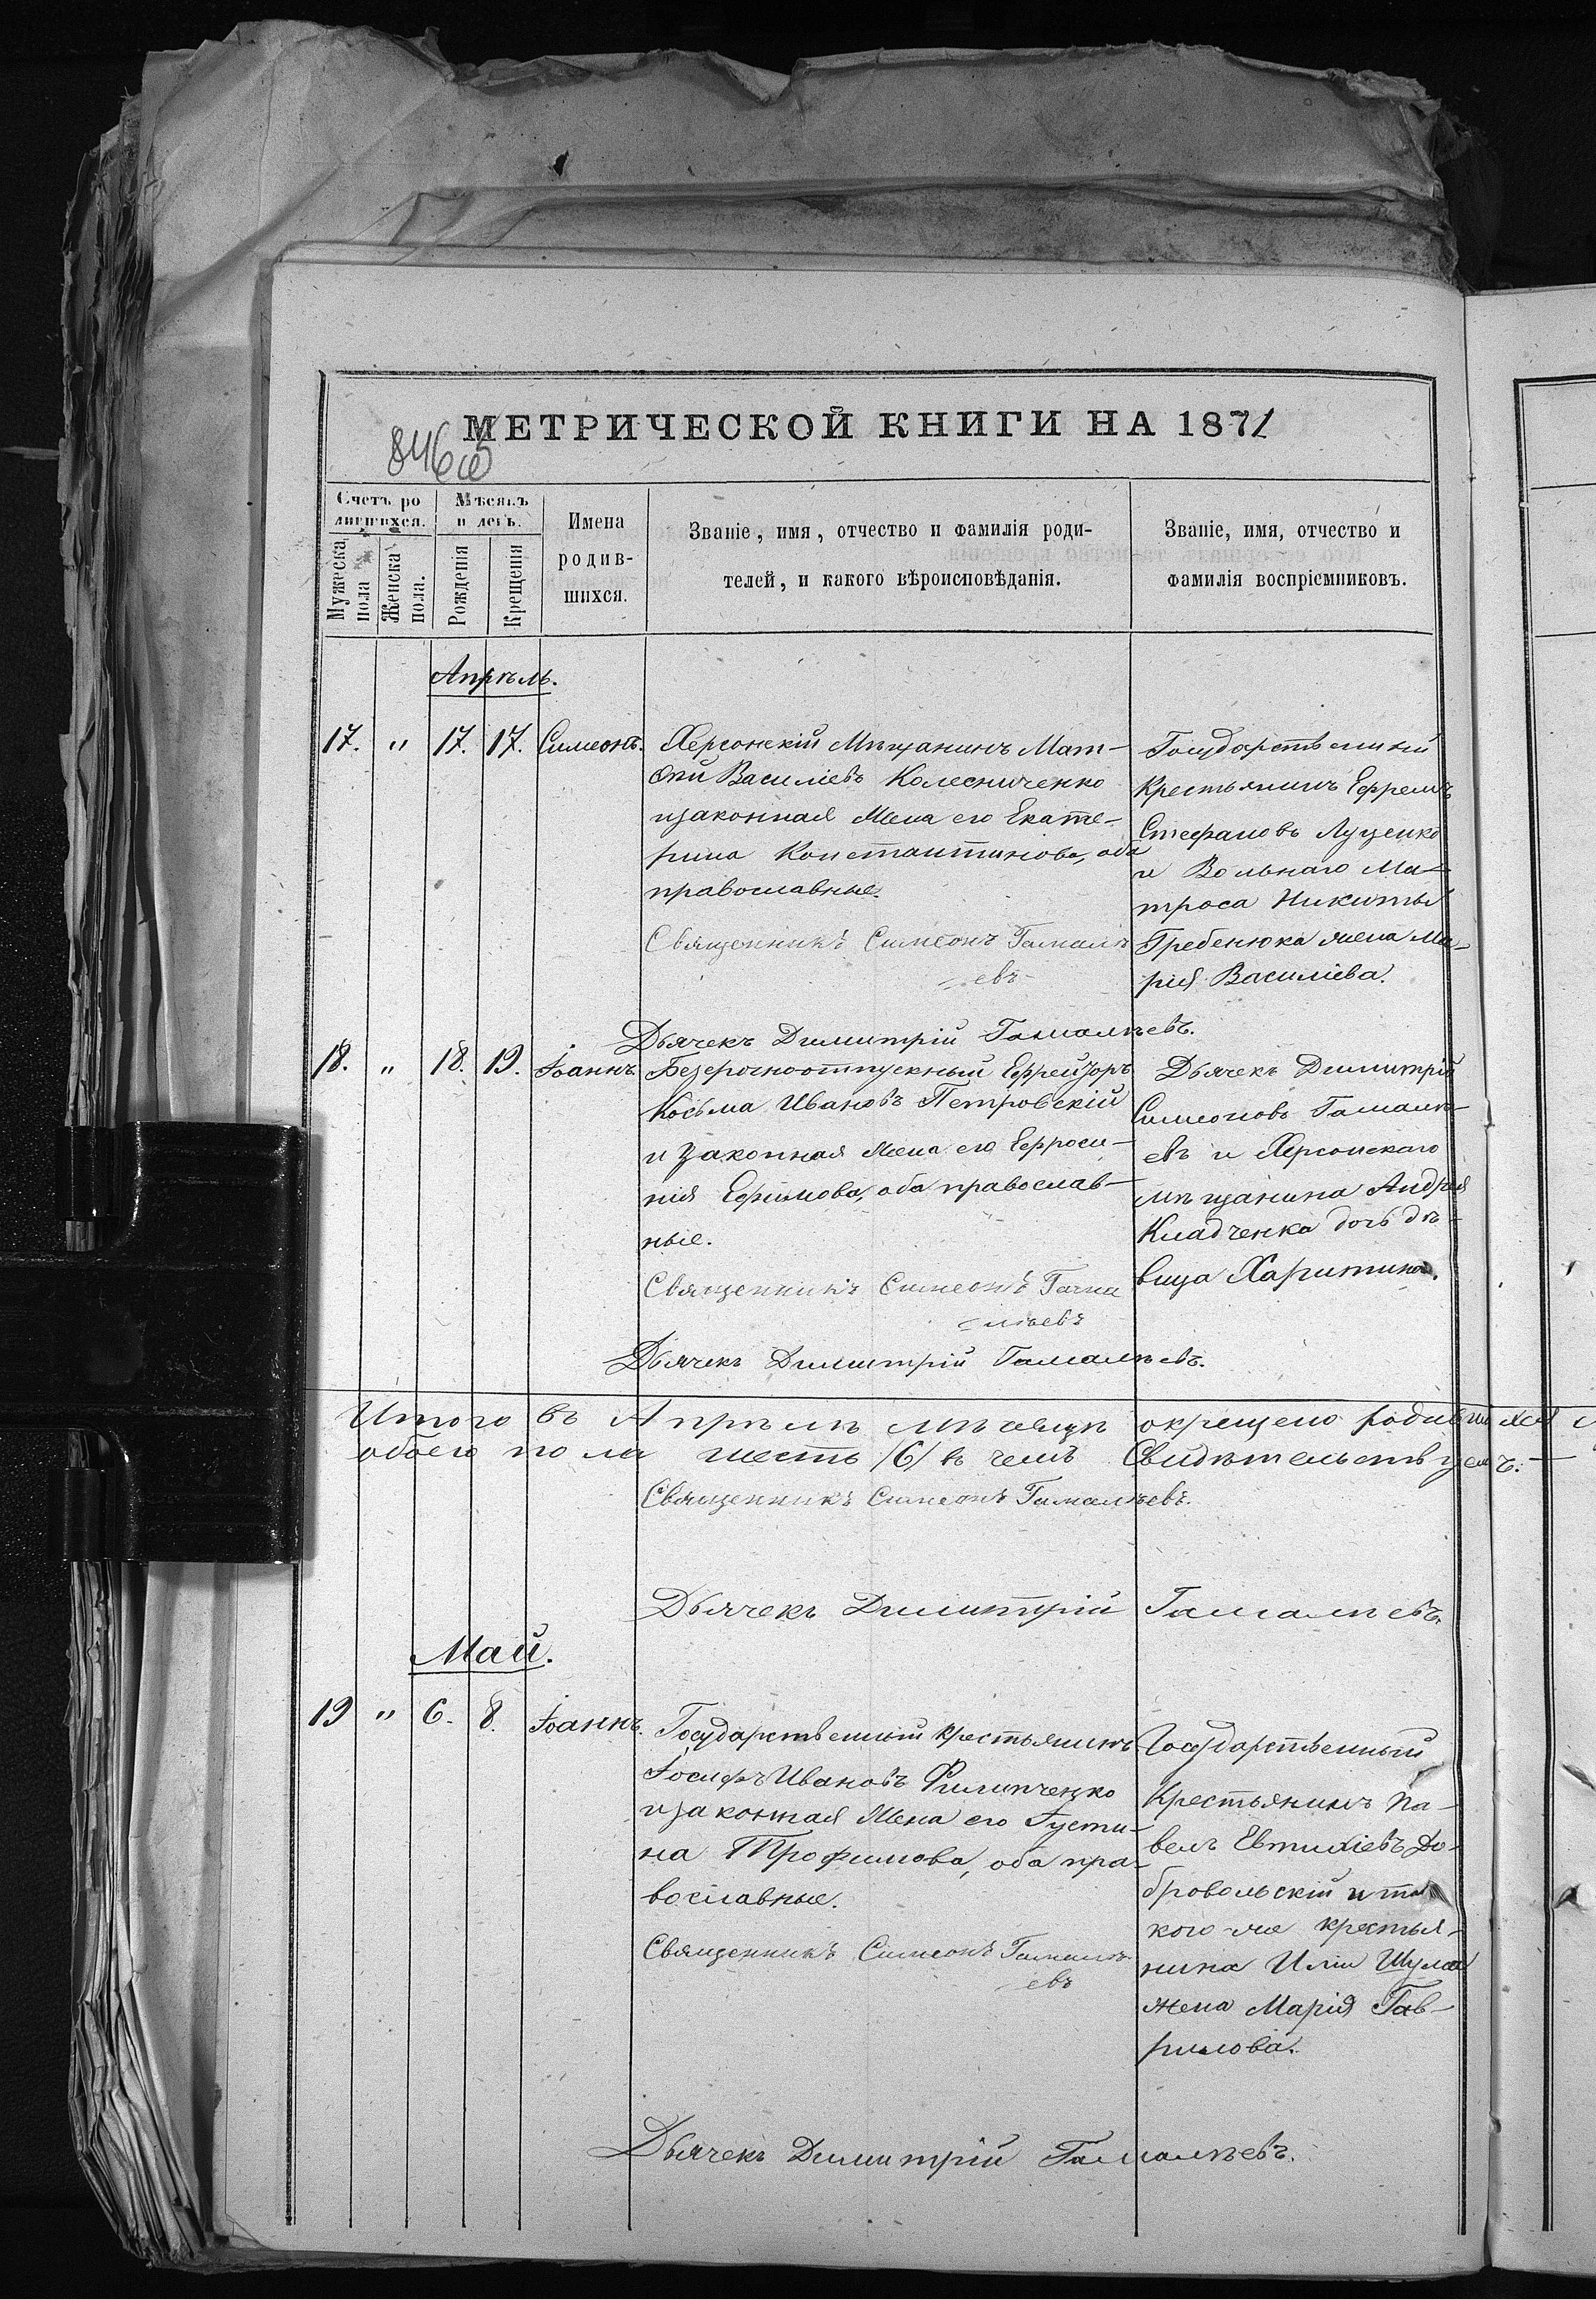 МЕТРИЧЕСКОЙ КНИГИ НА 1871
846
Счетъ ро
дившихся.
Мѣсяцъ
и день.
Имена
родив-
шихся.
Званіе, имя, отчество и фамилія роди-
телей, и какого вѣроисповѣданія.
Званіе, имя, отчество и
фамилія воспріемниковъ.
Мужеска
пола
Женска
пола.
Рожденія
Крещенія
Апрѣль.
17. " 17. 17. Симеонъ.
Херсонскій Мѣщанинъ Мат-
ѳій Василіевъ Колесниченко
и законная Жена его Екате-
рина Константинова, оба
православные.
Священникъ Симеонъ Гамалѣ
евъ
Дьячекъ Димитрій Гамалѣевъ.
Государственный
Крестьянинъ Ефремъ
Стефановъ Луценко
и Вольнаго Ма-
троса Никиты
Гребенюка жена Ма-
рія Василіева.
18. " 18. 19. Іоаннъ.
Безсрочноотпускный Ефрейторъ
Косьма Ивановъ Петровскій
и законная Жена его Ефроси-
нія Ефимова, оба православ-
ные.
Священникъ Симеонъ Гама
лѣевъ
Дьячекъ Димитрій Гамалѣевъ.
Дьячекъ Димитрій
Симеоновъ Гамалѣ-
евъ и Херсонскаго
мѣщанина Андрея
Кладченка дочь дѣ-
вица Харитина.
Итого въ Апрѣлѣ мѣсяцѣ окрещено родившихся
обоего пола шесть /6/ въ чемъ Свидѣтельствуемъ.
Священникъ Симеонъ Гамалѣевъ.
Дьячекъ Димитрій Гамалѣевъ.
Май.
19 " 6. 8. Іоаннъ.
Государственный крестьянинъ
Іосифъ Ивановъ Филипченко
и законная Жена его Густи-
на Трофимова, оба пра-
вославные.
Священникъ Симеонъ Гамалѣ
евъ
Государственный
Крестьянинъ Па-
велъ Евтихіевъ До-
бровольскій и та
кого-же крестья-
нина Иліи Шула
жена Марія Гав-
рилова.
Дьячекъ Димитрій Гамалѣевъ.